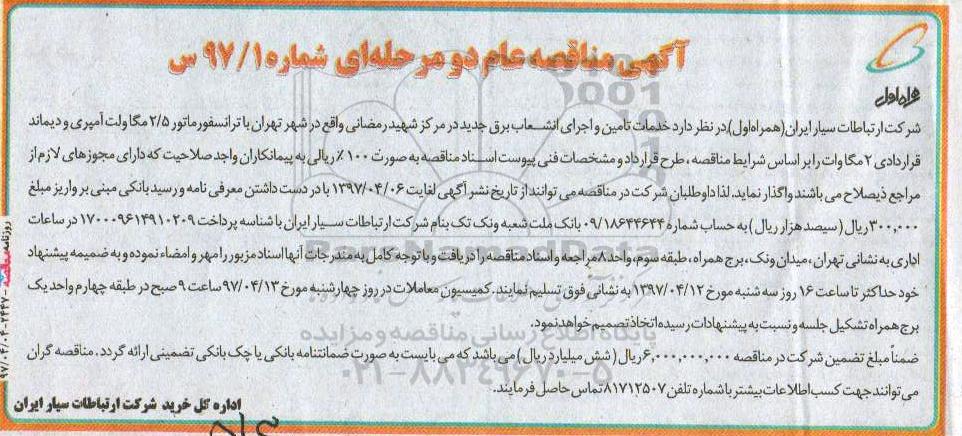 آگهی مناقصه عام دو مرحله‌ای شماره ۹۷/۱ س
همراه اول
شرکت ارتباطات سیار ایران (همراه اول) در نظر دارد خدمات تامین و اجرای انشعاب برق جدید در مرکز شهید رمضانی واقع در شهر تهران با ترانسفورماتور ۲/۵ مگا ولت آمپری و دیماند
قراردادی ۲ مگا وات را بر اساس شرایط مناقصه ، طرح قرارداد و مشخصات فنی پیوست اسناد مناقصه به صورت ۱۰۰٪ ریالی به پیمانکاران واجد صلاحیت که دارای مجوزهای لازم از
مراجع ذیصلاح می باشند واگذار نماید. لذا داوطلبان شرکت در مناقصه می توانند از تاریخ نشر آگهی لغایت ۱۳۹۷/۰۴/۰۶ با در دست داشتن معرفی نامه و رسید بانکی مبنی بر واریز مبلغ
۳۰۰,۰۰۰ ریال ( سیصد هزار ریال ) به حساب شماره ۰۹/۱۸۶۴۴۶۴۴ بانک ملت شعبه ونک تک بنام شرکت ارتباطات سیار ایران با شناسه پرداخت ۱۷۰۰۰۹۶۱۴۹۱۰۲۰۹ در ساعات
اداری به نشانی تهران ، میدان ونک ، برج همراه ، طبقه سوم، واحد ۸ مراجعه و اسناد مناقصه را دریافت و با توجه کامل به مندرجات آنها اسناد مزبور را مهر و امضاء نموده و به ضمیمه پیشنهاد
خود حداکثر تا ساعت ۱۶ روز سه شنبه مورخ ۱۳۹۷/۰۴/۱۲ به نشانی فوق تسلیم نمایند. کمیسیون معاملات در روز چهارشنبه مورخ ۹۷/۰۴/۱۳ ساعت ۹ صبح در طبقه چهارم واحد یک
برج همراه تشکیل جلسه و نسبت به پیشنهادات رسیده اتخاذ تصمیم خواهد نمود.
ضمناً مبلغ تضمین شرکت در مناقصه ۶,۰۰۰,۰۰۰,۰۰۰ ریال ( شش میلیارد ریال ) می باشد که می بایست به صورت ضمانتنامه بانکی یا چک بانکی تضمینی ارائه گردد. مناقصه گران
می توانند جهت کسب اطلاعات بیشتر با شماره تلفن ۸۱۷۱۲۵۰۷ تماس حاصل فرمایند.
اداره کل خرید شرکت ارتباطات سیار ایران
روزنامه مناقصه - ۲۴۴۷ - ۹۷/۰۴/۰۴
ParsNamadData
پایگاه اطلاع رسانی مناقصه و مزایده
۰۲۱-۸۸۳۴۹۶۷۰-۵